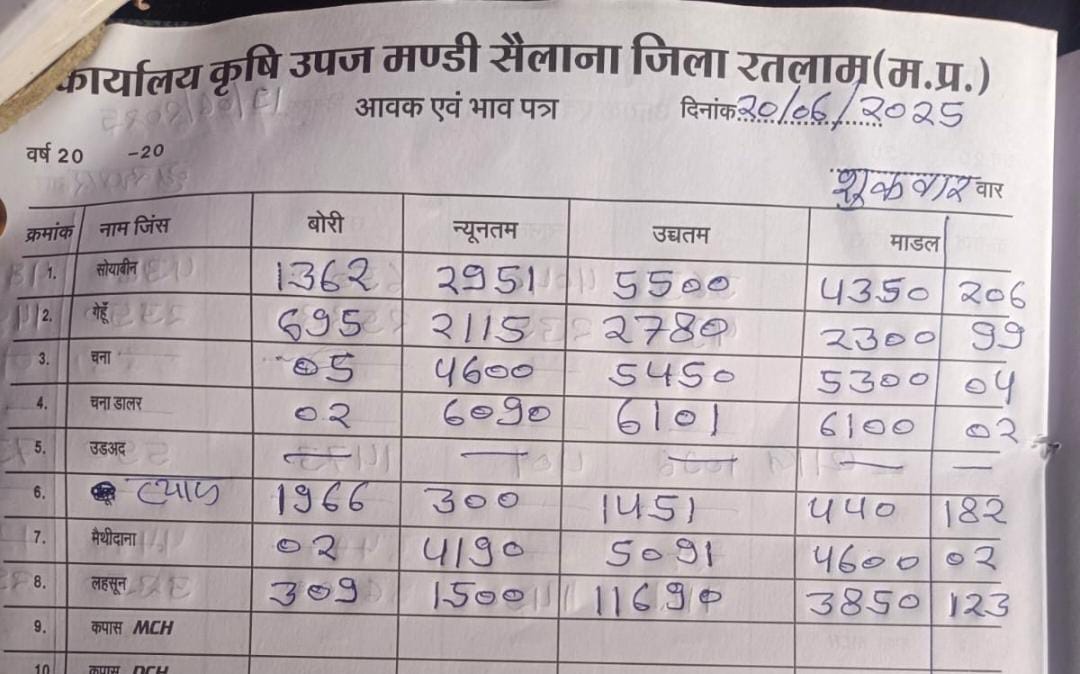 कार्यालय कृषि उपज मण्डी सैलाना जिला रतलाम(म.प्र.)
आवक एवं भाव पत्र दिनांक 20/06/2025
वर्ष 20 -20
शुक्रवार वार
क्रमांक नाम जिंस बोरी न्यूनतम उच्चतम माडल
1. सोयाबीन 1362 2951 5500 4350 206
2. गेहूँ 695 2115 2780 2300 99
3. चना 05 4600 5450 5300 04
4. चना डालर 02 6090 6101 6100 02
5. उडअद — — — — —
6. प्याज 1966 300 1451 440 182
7. मैथीदाना 02 4190 5091 4600 02
8. लहसून 309 1500 11690 3850 123
9. कपास MCH
10 कपास DCH